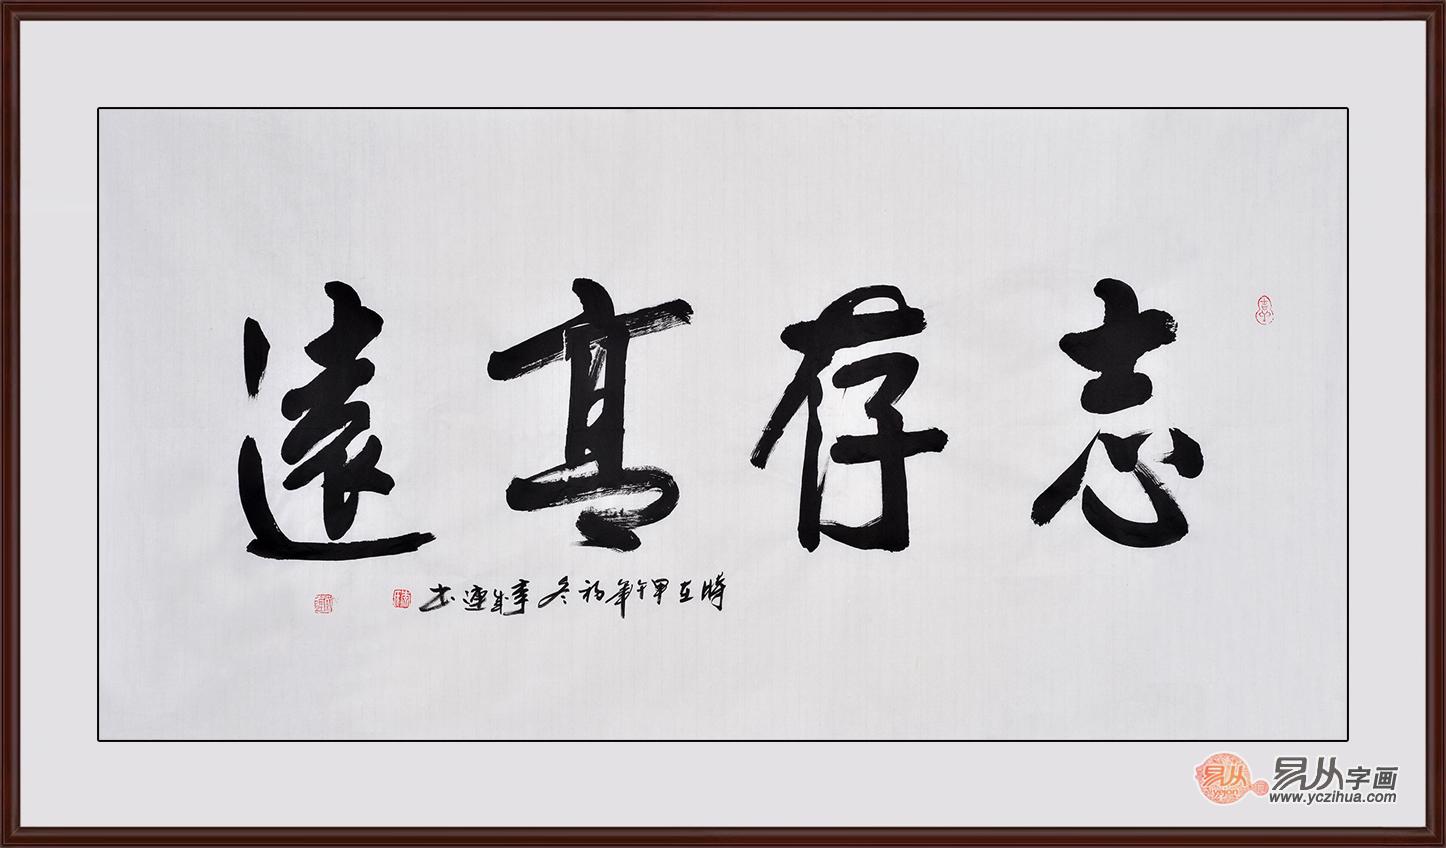 志存高遠
時在甲午年初冬李成連书
易从
易从字画
www.yczihua.com